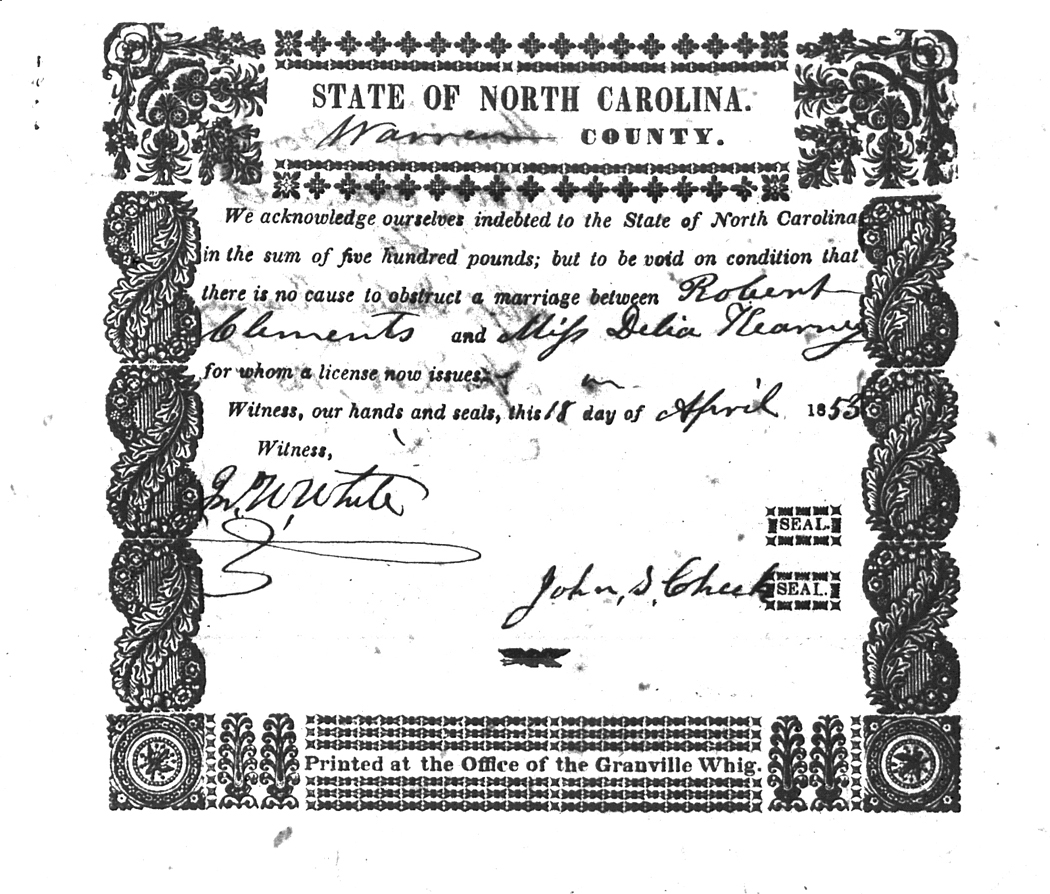 STATE OF NORTH CAROLINA.
Warren COUNTY.
We acknowledge ourselves indebted to the State of North Carolina
in the sum of five hundred pounds; but to be void on condition that
there is no cause to obstruct a marriage between Robert
Clements and Miss Delia Kearney
for whom a license now issues.
Witness, our hands and seals, this 18 day of April 1853
Witness,
Jn. W. White
SEAL.
John. S. Cheek SEAL.
Printed at the Office of the Granville Whig.